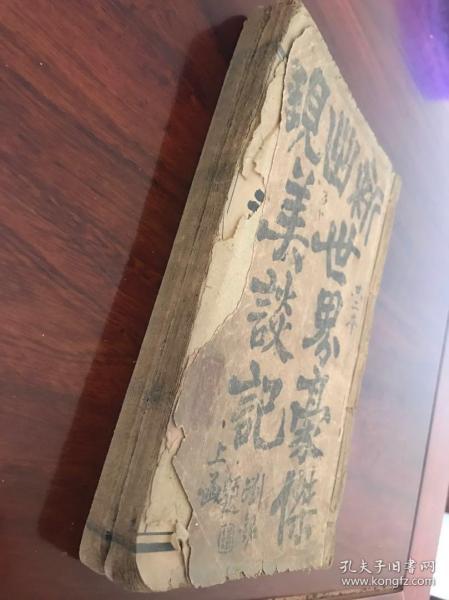 新出現
世界豪傑
美談記
上函
孔夫子旧书网
www.kongfz.com